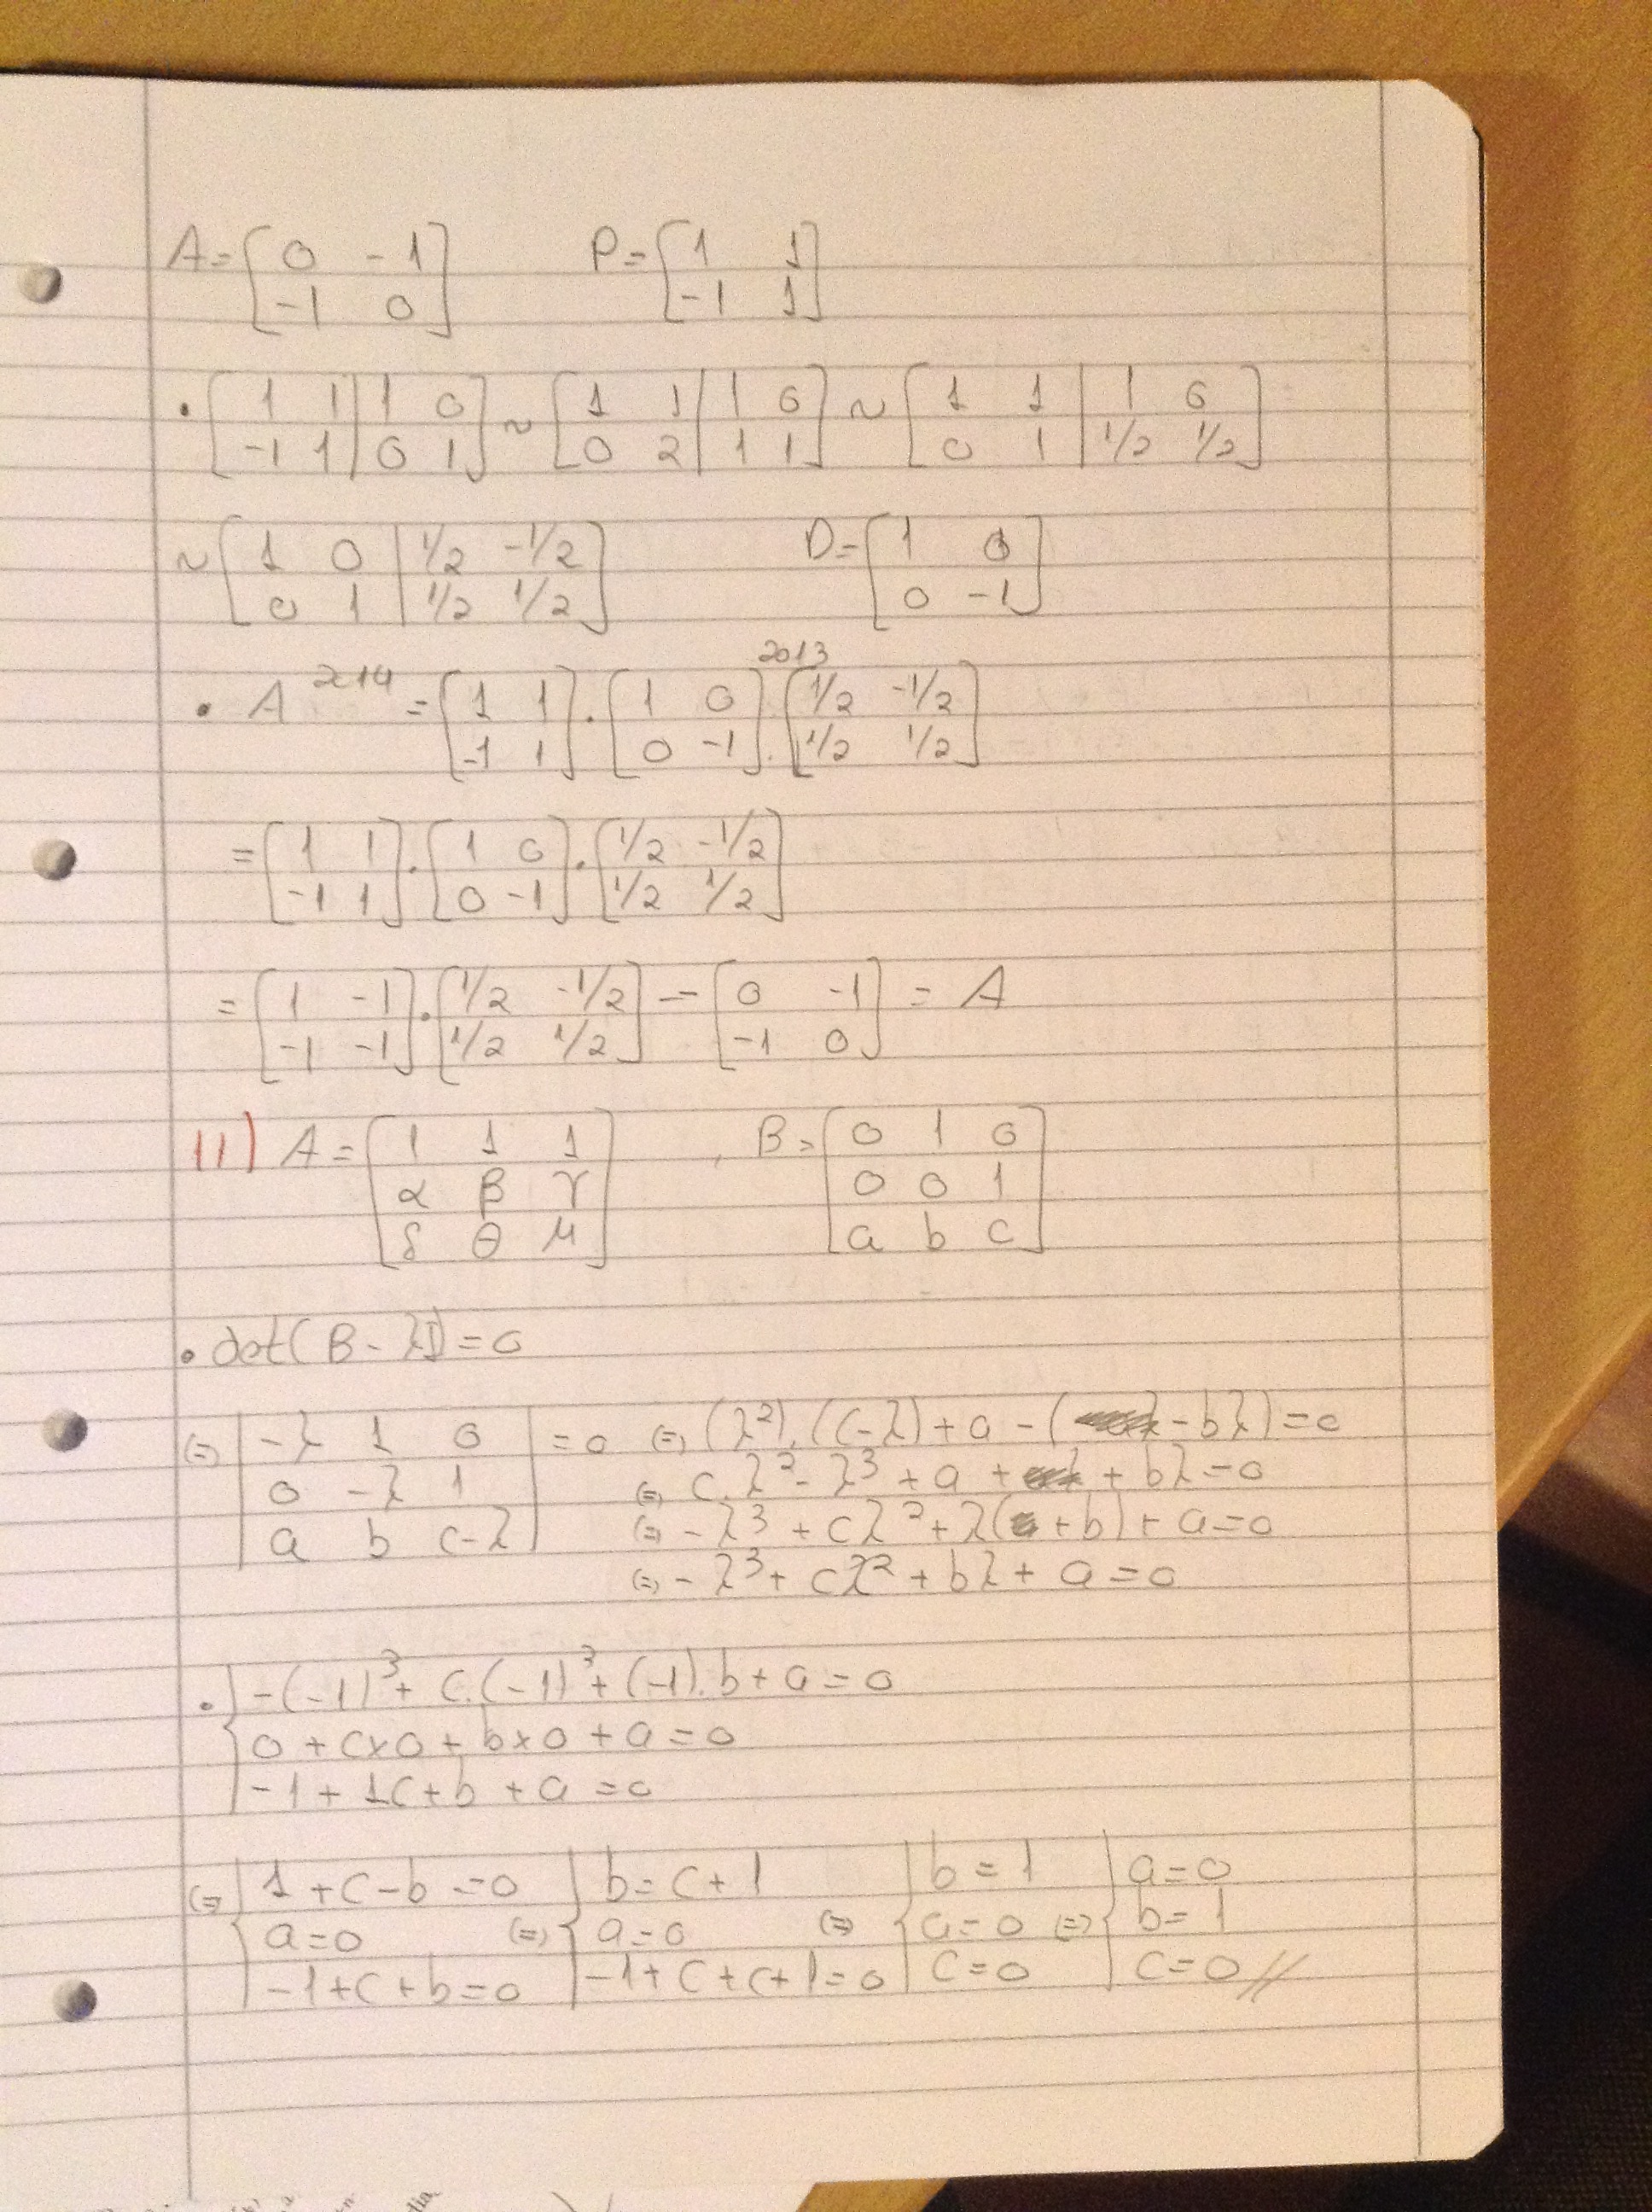 A = [ 0 -1 ; -1 0 ]   P = [ 1 1 ; -1 1 ]
• [ 1 1 | 1 0 ; -1 1 | 0 1 ] ~ [ 1 1 | 1 0 ; 0 2 | 1 1 ] ~ [ 1 1 | 1 0 ; 0 1 | 1/2 1/2 ]
~ [ 1 0 | 1/2 -1/2 ; 0 1 | 1/2 1/2 ]   D = [ 1 0 ; 0 -1 ]
• A^2014 = [ 1 1 ; -1 1 ] · [ 1 0 ; 0 -1 ]^2013 · [ 1/2 -1/2 ; 1/2 1/2 ]
= [ 1 1 ; -1 1 ] · [ 1 0 ; 0 -1 ] · [ 1/2 -1/2 ; 1/2 1/2 ]
= [ 1 -1 ; -1 -1 ] · [ 1/2 -1/2 ; 1/2 1/2 ] = [ 0 -1 ; -1 0 ] = A
11) A = [ 1 1 1 ; α β γ ; δ θ μ ] , B = [ 0 1 0 ; 0 0 1 ; a b c ]
• det(B - λI) = 0
(=) | -λ 1 0 ; 0 -λ 1 ; a b c-λ | = 0 (=) (λ²).(c-λ) + a - ( -bλ) = 0
(=) c.λ² - λ³ + a + + bλ = 0
(=) -λ³ + cλ² + λ( + b) + a = 0
(=) -λ³ + cλ² + bλ + a = 0
• { -(-1)³ + c.(-1)³ + (-1).b + a = 0
0 + c×0 + b×0 + a = 0
-1 + 1c + b + a = 0
(=) { 1 + c - b = 0 ; a = 0 ; -1 + c + b = 0 (=) { b = c + 1 ; a = 0 ; -1 + c + c + 1 = 0 (=) { b = 1 ; a = 0 ; c = 0 (=) { a = 0 ; b = 1 ; c = 0 //